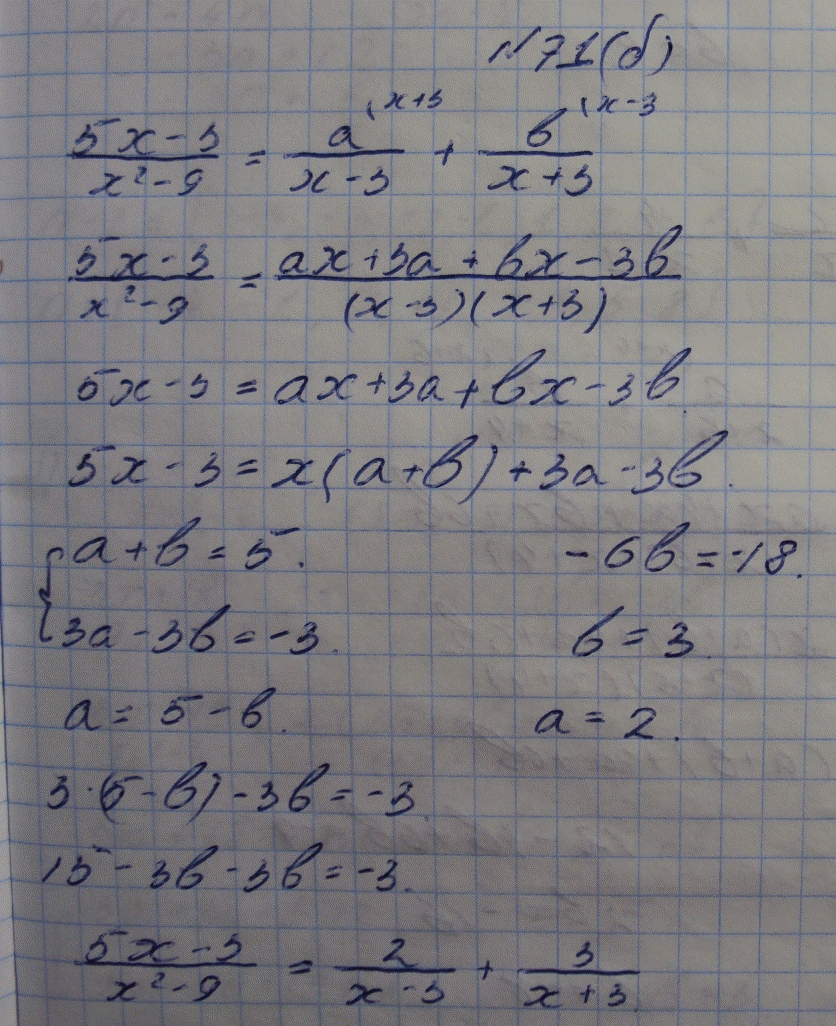 №71(б)
(x+3 (x-3
5x-3/x²-9 = a/x-3 + b/x+3
5x-3/x²-9 = ax+3a+bx-3b/(x-3)(x+3)
5x-3 = ax+3a+bx-3b.
5x-3 = x(a+b)+3a-3b.
{a+b=5. -6b=-18.
3a-3b=-3. b=3.
a=5-b. a=2.
3·(5-b)-3b=-3.
15-3b-3b=-3.
5x-3/x²-9 = 2/x-3 + 3/x+3.